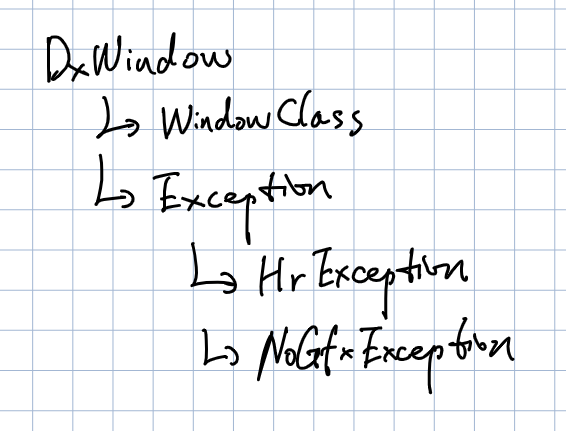 DxWindow
↳ WindowClass
↳ Exception
↳ HrException
↳ NoGfxException